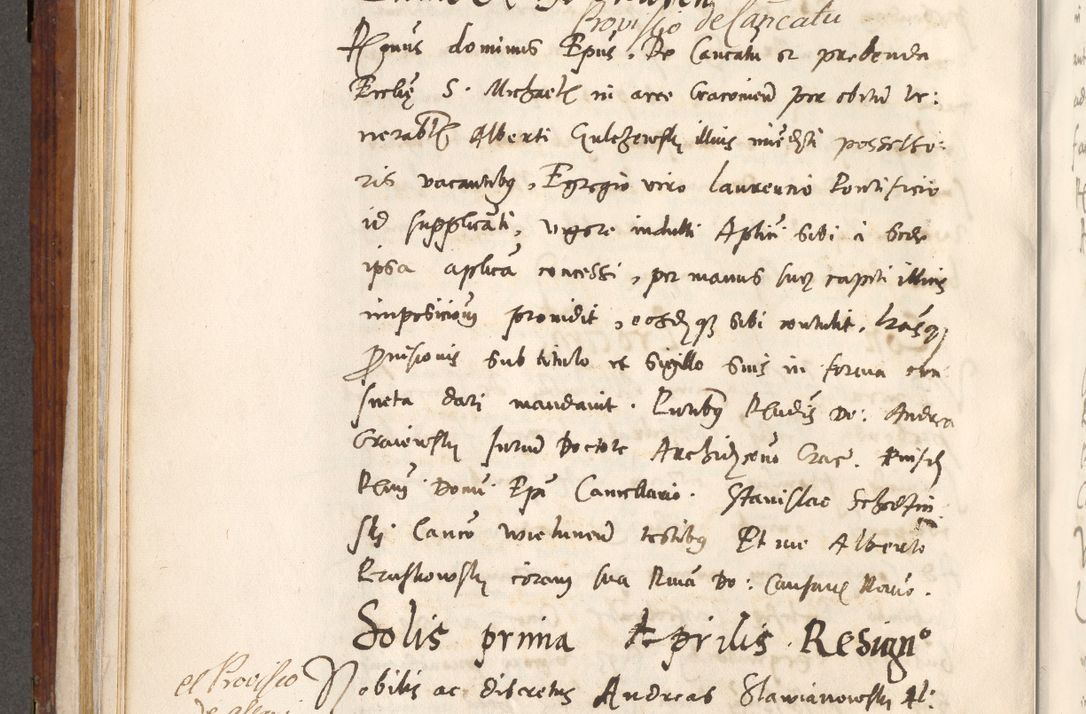 Provisio de Cancatu
Rmus dominus Epus, De Cancatu et prebenda
Ecclie S. Michaelis in arce Cracovien per obitum ve:
nerabilis Alberti Gulczewski illius immediati possesso:
ris vacantibus, Egregio viro Laurencio Pontificio
id supplicanti, vigore indulti Aplici sibi a Sede
ipsa aplica concessi, per manus sue capiti illius
imposicionem providit, eosdemque sibi contulit, lrasque
provisionis sub titulo et sigillo suis in forma con
sueta dari mandavit. Presentibus Rndis Do: Andrea
Graiewski Jurium Doctore Archidiacono Crac.
Rmi Domini Epi Cancellario. Stanislao
ski Canco Wielunen testibus Et me Alberto
Kruskowski coram sua Rma Do:
Solis prima Aprilis. Resigno
et Provisio
de alteri
Nobilis ac discretus Andreas Slawianowski